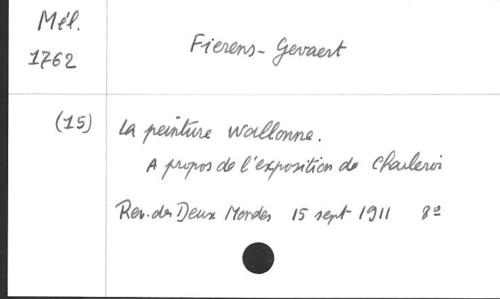 Mél.
1762
Fierens-Gevaert
(15)
La peinture wallonne.
A propos de l'exposition de Charleroi
Rev. des Deux Mondes 15 sept 1911 8º